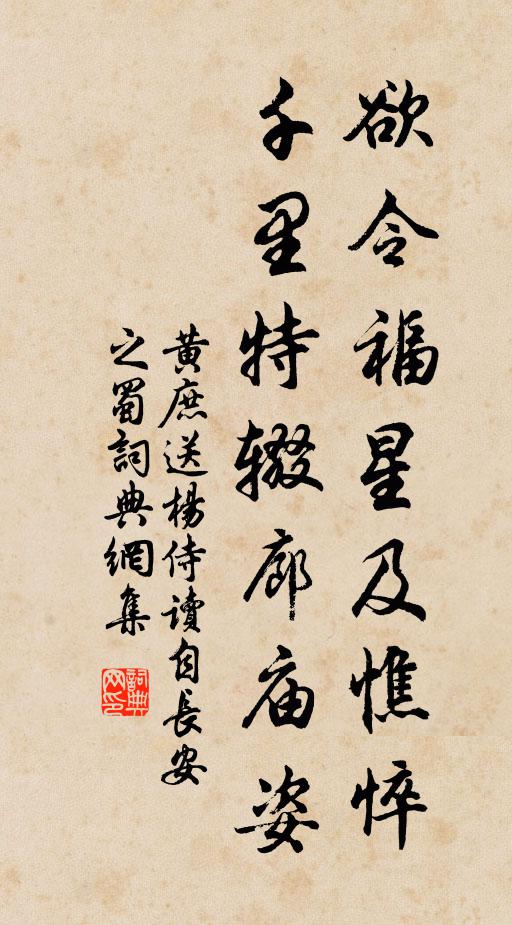 欲令福星及憔悴
千里特辍廊庙姿
黄庶送楊侍讀自長安
之蜀詞典網集
詞典网印